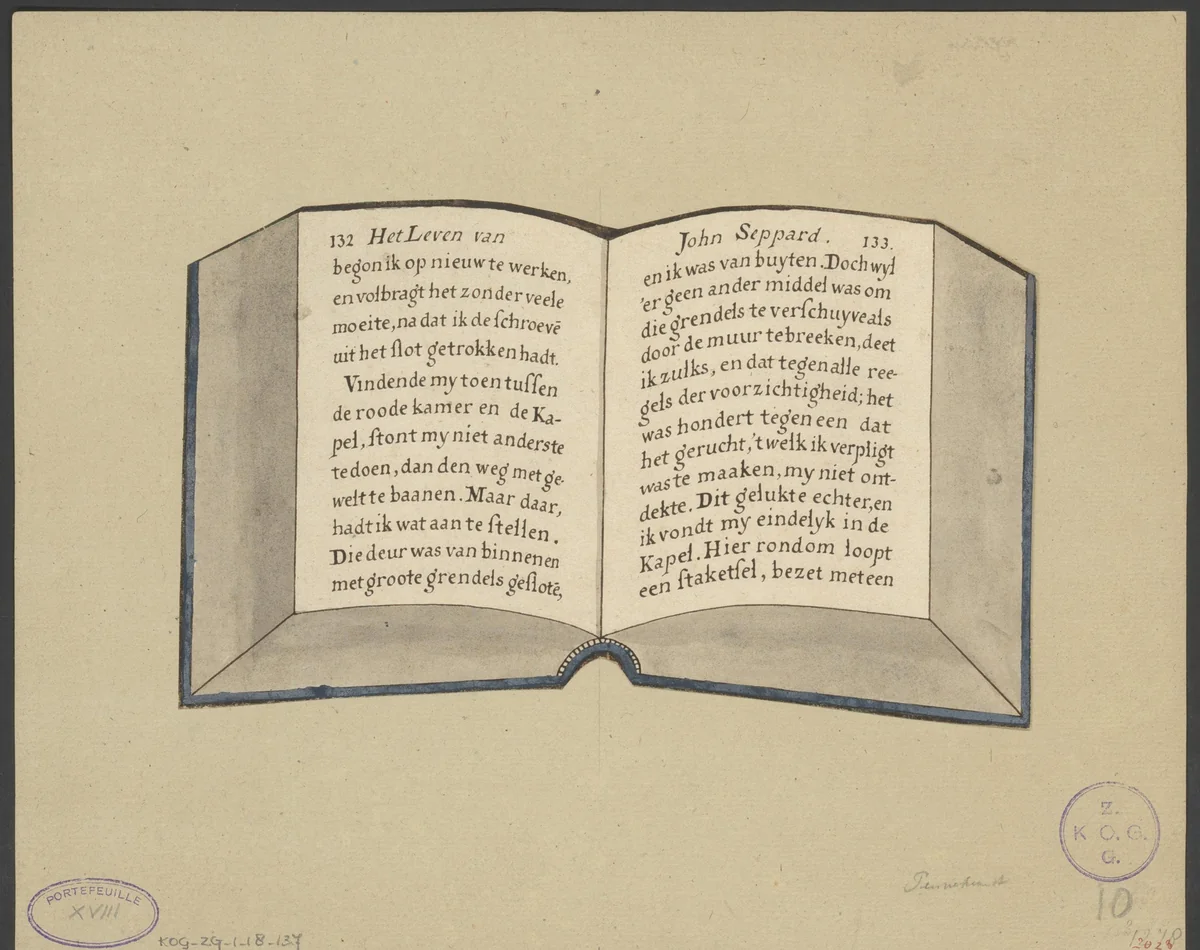 132 Het Leven van
begon ik op nieuw te werken,
en volbragt het zonder veele
moeite, na dat ik de ſchroevē
uit het ſlot getrokken hadt.
Vindende my toen tuſſen
de roode kamer en de Ka-
pel, ſtont my niet anderste
te doen, dan den weg met ge-
welt te baanen. Maar daar,
hadt ik wat aan te ſtellen.
Die deur was van binnen en
met groote grendels geſlotē,
John Seppard. 133.
en ik was van buyten. Doch wyl
'er geen ander middel was om
die grendels te verſchuyve als
door de muur te breeken, deet
ik zulks, en dat tegen alle ree-
gels der voorzichtigheid; het
was hondert tegen een dat
het gerucht, 't welk ik verpligt
was te maaken, my niet ont-
dekte. Dit gelukte echter, en
ik vondt my eindelyk in de
Kapel. Hier rondom loopt
een ſtaketſel, bezet met een
Z.
K O. G.
G.
PORTEFEUILLE
XVIII
KOG-ZG-1-18-137
10